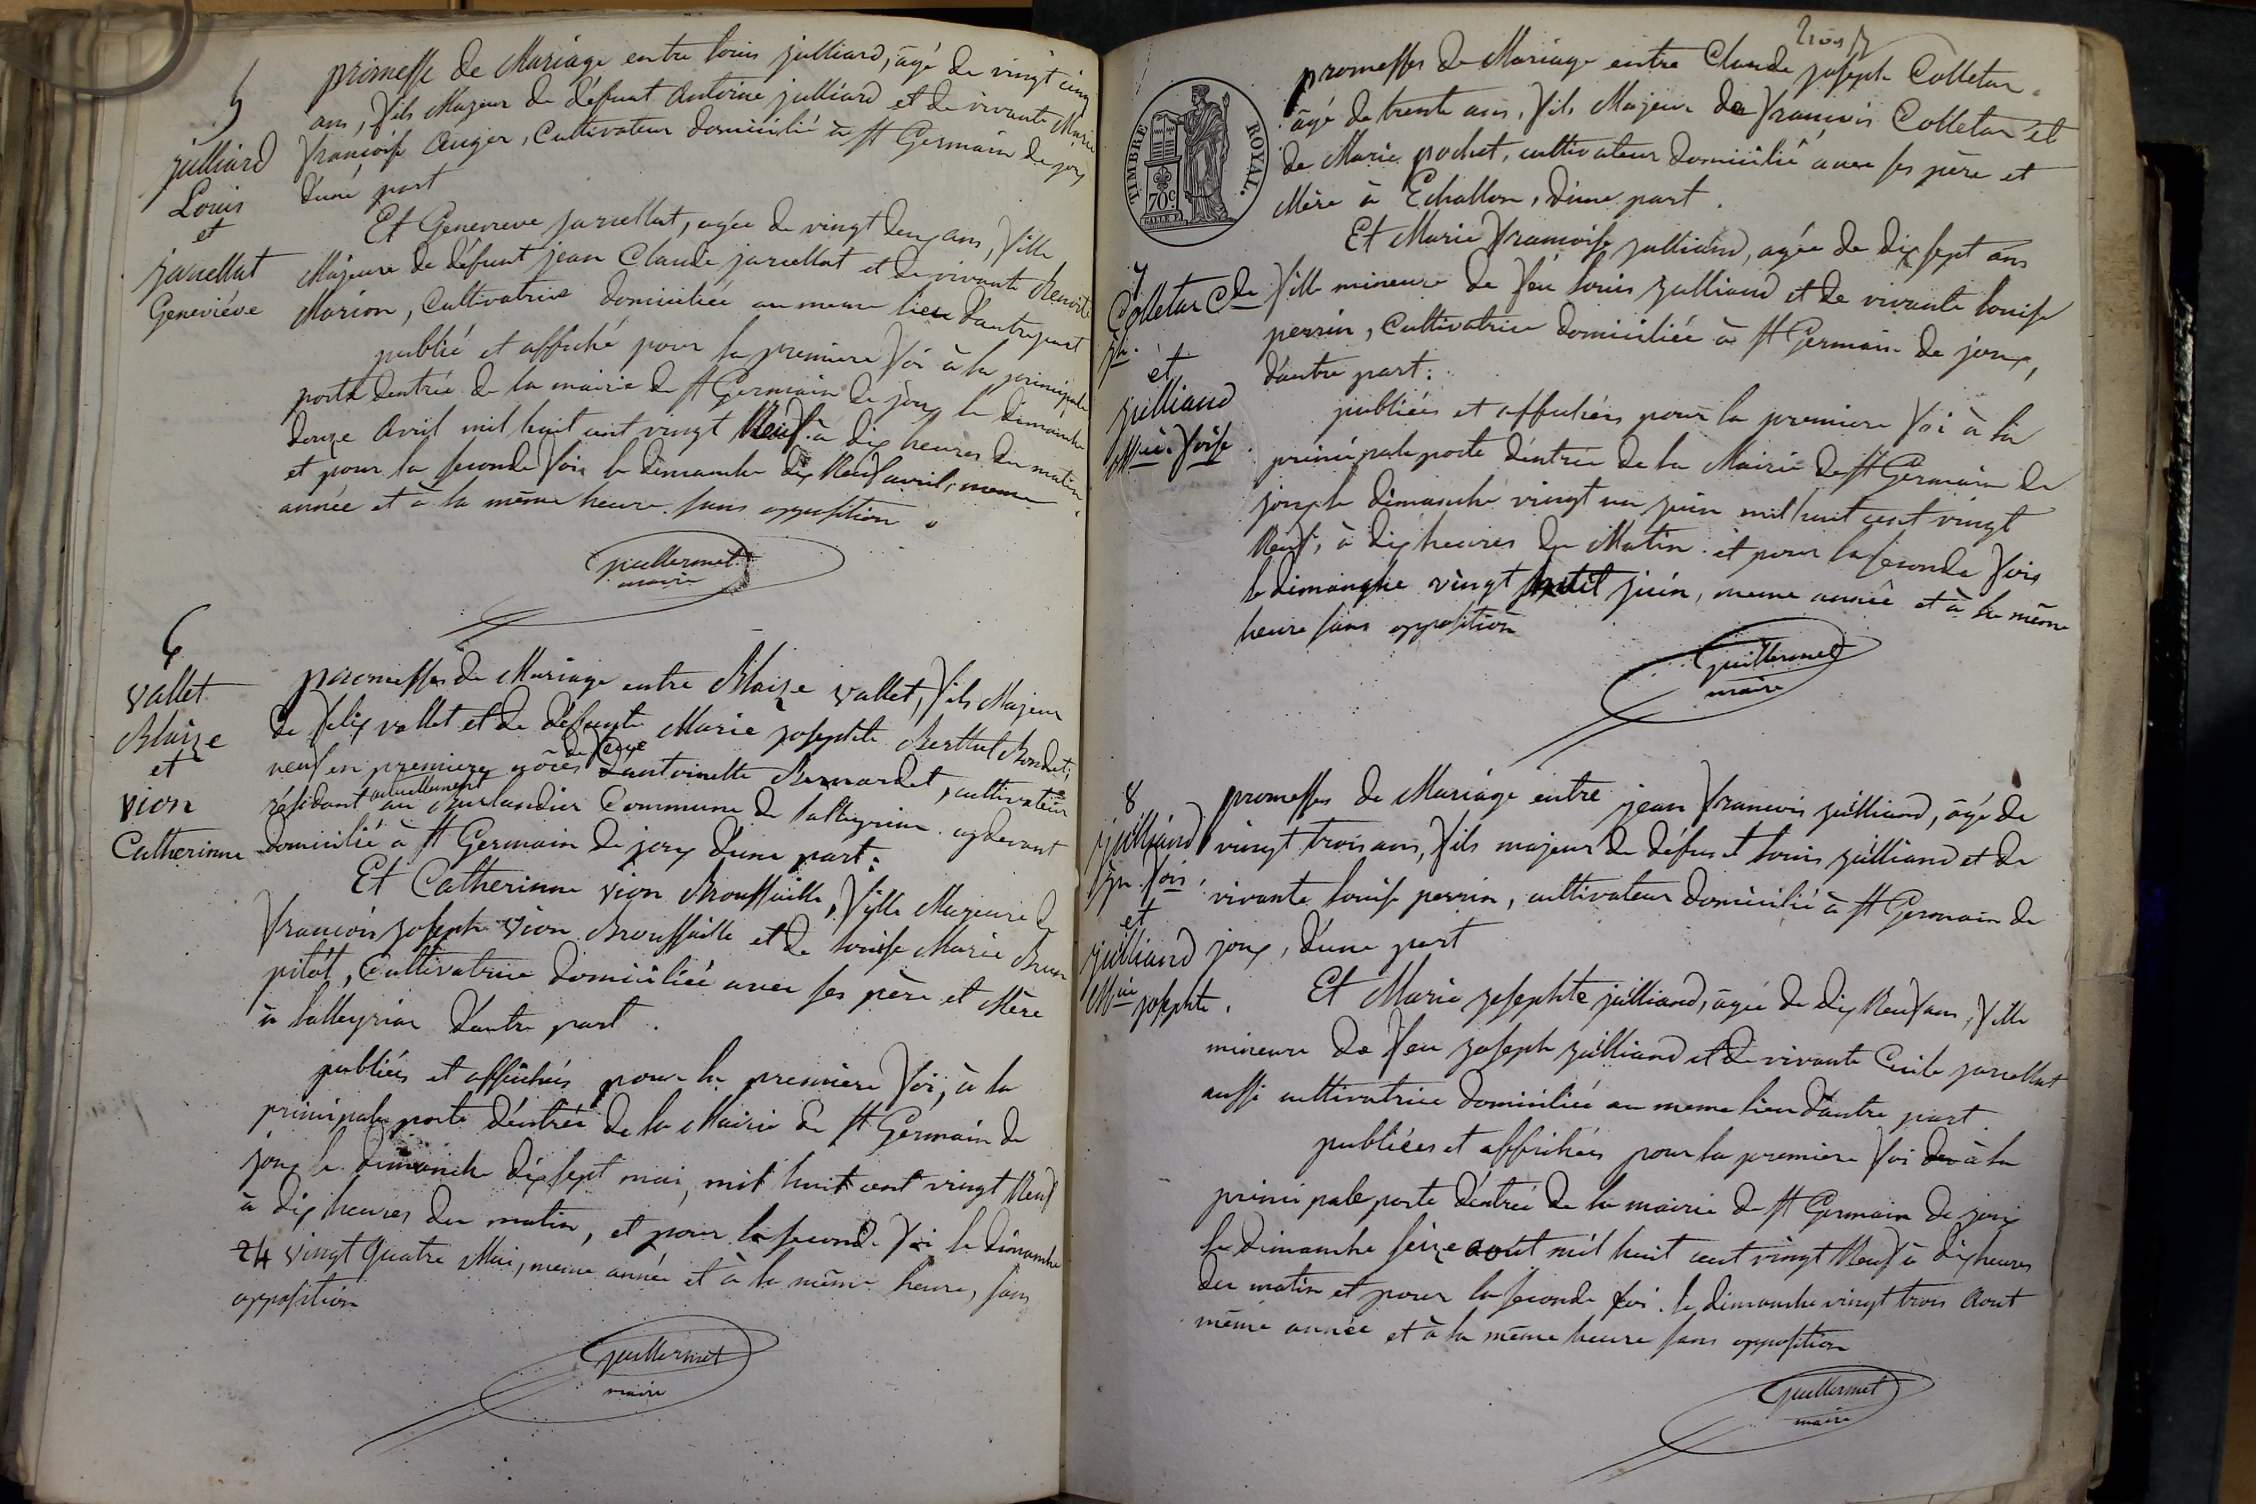 5
julliard
Louis
et
jarcellat
Geneviéve
promesse de Mariage entre louis julliard, âgé de vingt cinq
ans, fils Majeur de défunt Antoine julliard et de vivante Marie
françoise Auger, Cultivateur domicilié à St Germain de joux
d'une part
Et Genevieve jarcellat, agée de vingt deux ans, fille
Majeure de défunt jean Claude jarcellat et de vivante Benoite
Marion, Cultivatrice domiciliée au meme lieu d'autre part
publié et affiché pour la premiere foi à la principale
porte d'entrée de la mairie de St Germain de joux le dimanche
douze Avril mil huit cent vingt Neuf à dix heures du matin
et pour la seconde fois le dimanche dix Neuf avril, meme
année et à la même heure sans opposition
guillermet
maire
6
vallet
Blaize
et
vion
Catherinne
promesses de Mariage entre Blaize vallet, fils Majeur
de felix vallet et de défunte Marie josephte Berthet Bondet,
veuf en premiere nôces de feue d'antoinette Bernardet, cultivateur
résidant actuellement au Burlandier Commune de lalleyriat cydevant
domicilié à St Germain de joux d'une part.
Et Catherinne vion Broussaille, fille Majeure de
françois joseph vion Broussaille et de louise Marie Brun
pitât, Cultivatrice domiciliée avec ses père et Mère
à lalleyriat d'autre part.
publiés et affichés pour la premiere foi, à la
principale porte d'entrée de la Mairie de St Germain de
joux le dimanche dix sept mai, mil huit cent vingt Neuf
à dix heures du matin, et pour la seconde foi le dimanche
24 vingt quatre Mai, meme année et à la même heure, sans
opposition
guillermet
maire
trois
TIMBRE ROYAL.
70c
7
Colletaz Cde
jh.
et
julliard
Mie. foise.
promesses de Mariage entre Claude joseph Colletaz
âgé de trente ans, fils Majeur de françois Colletaz et
de Marie pochet, cultivateur domicilié avec ses père et
Mère à Echallon, d'une part.
Et Marie françoise julliard, agée de dix sept ans
fille mineure de feu louis julliard et de vivante louise
perrin, Cultivatrice domiciliée à St Germain de joux,
d'autre part.
publiées et affichées pour la premiere foi à la
principale porte d'entrée de la Mairie de St Germain de
joux le dimanche vingt un juin mil huit cent vingt
Neuf, à dix heures du Matin et pour la seconde fois
le dimanche vingt huit juin, meme année et à la même
heure sans opposition
guillermet
maire
8
julliard
jn. fois.
et
julliard
Mie josephte.
promesses de Mariage entre jean francois julliard, âgé de
vingt trois ans, fils majeur de défunt louis julliard et de
vivante louise perrin, cultivateur domicilié à St Germain de
joux, d'une part
Et Marie josephte julliard, agée de dix Neuf ans, fille
mineure de feu joseph julliard et de vivante Cecile jarcellat
aussi cultivatrice domiciliée au meme lieu d'autre part.
publiées et affichées pour la premiere foi à la
principale porte d'entrée de la mairie de St Germain de joux
le dimanche seize août mil huit cent vingt Neuf à dix heures
du matin et pour la seconde foi le dimanche vingt trois Aout
même année et à la même heure sans opposition
guillermet
maire